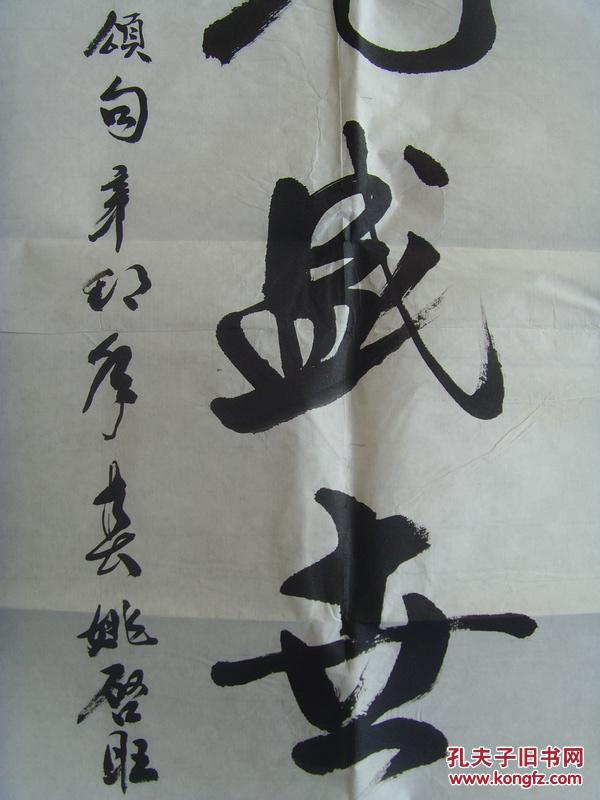 盛世
頌句辛卯年姚啓旺
孔夫子旧书网
www.kongfz.com